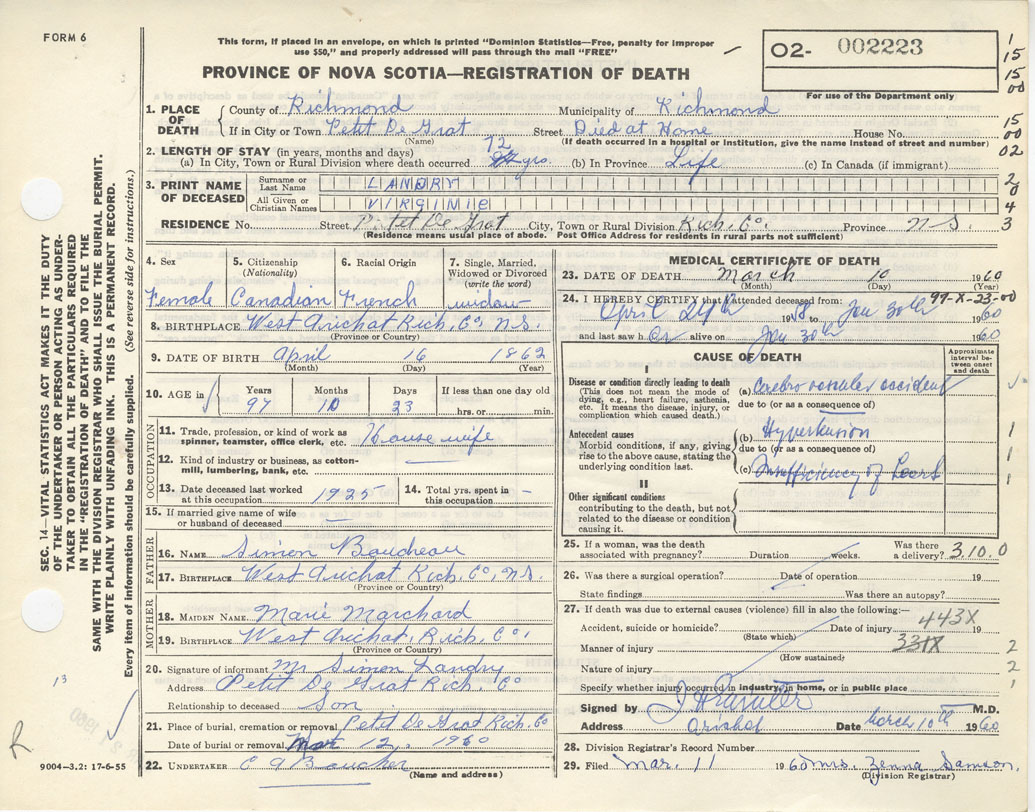 FORM 6
This form, if placed in an envelope, on which is printed "Dominion Statistics—Free, penalty for improper
use $50," and properly addressed will pass through the mail "FREE"
O2- 002223
For use of the Department only
PROVINCE OF NOVA SCOTIA—REGISTRATION OF DEATH
1. PLACE OF DEATH County of Richmond Municipality of Richmond
If in City or Town Petit De Grat Street Died at Home House No.
(Name) (If death occurred in a hospital or institution, give the name instead of street and number)
2. LENGTH OF STAY (in years, months and days)
(a) In City, Town or Rural Division where death occurred 72 yrs. (b) In Province Life (c) In Canada (if immigrant)
3. PRINT NAME OF DECEASED
Surname or Last Name LANDRY
All Given or Christian Names VIRGINIE
RESIDENCE No. Street Petet De Grat City, Town or Rural Division Rich. Co. Province N S.
(Residence means usual place of abode. Post Office Address for residents in rural parts not sufficient)
4. Sex Female
5. Citizenship (Nationality) Canadian
6. Racial Origin French
7. Single, Married, Widowed or Divorced (write the word) widow
8. BIRTHPLACE West Arichat Rich. Co, N.S.
(Province or Country)
9. DATE OF BIRTH April 16 1862
(Month) (Day) (Year)
10. AGE in Years 97 Months 10 Days 23 If less than one day old hrs. or min.
OCCUPATION
11. Trade, profession, or kind of work as spinner, teamster, office clerk, etc. House wife
12. Kind of industry or business, as cotton-mill, lumbering, bank, etc. —
13. Date deceased last worked at this occupation 1935
14. Total yrs. spent in this occupation –
15. If married give name of wife or husband of deceased —
FATHER
16. NAME Simon Boudreau
17. BIRTHPLACE West Arichat Rich. Co, N.S.
(Province or Country)
MOTHER
18. MAIDEN NAME Marie Marchard
19. BIRTHPLACE West Arichat, Rich. Co,
(Province or Country)
20. Signature of informant Mr Simon Landry
Address Petit De Grat Rich. Co
Relationship to deceased Son
21. Place of burial, cremation or removal Petit De Grat Rich. Co
Date of burial or removal Mar 12, 1960
22. UNDERTAKER C A Boucher
(Name and address)
MEDICAL CERTIFICATE OF DEATH
23. DATE OF DEATH March 10 1960
(Month) (Day) (Year)
24. I HEREBY CERTIFY that I attended deceased from: 99-X-23-00
April 24th 1958 to Jan 30th 1960
and last saw her alive on Jan 30th 1960
CAUSE OF DEATH
Approximate interval between onset and death
I
Disease or condition directly leading to death
(This does not mean the mode of dying, e.g., heart failure, asthenia, etc. It means the disease, injury, or complication which caused death.)
(a) Cerebro vascular accident
due to (or as a consequence of)
Antecedent causes
Morbid conditions, if any, giving rise to the above cause, stating the underlying condition last.
(b) Hypertension
due to (or as a consequence of)
(c) Insufficiency of heart
II
Other significant conditions
contributing to the death, but not related to the disease or condition causing it.
25. If a woman, was the death associated with pregnancy? Duration weeks. Was there a delivery? 3.10.0
26. Was there a surgical operation? Date of operation 19
State findings Was there an autopsy?
27. If death was due to external causes (violence) fill in also the following:—
443X
Accident, suicide or homicide? Date of injury 19
(State which) 331X
Manner of injury
(How sustained)
Nature of injury
Specify whether injury occurred in industry, in home, or in public place
Signed by M.D.
Address Arichat Date March 10th 1960
28. Division Registrar's Record Number
29. Filed Mar. 11 1960 Mrs. Zenna Samson.
(Division Registrar)
SEC. 14—VITAL STATISTICS ACT MAKES IT THE DUTY
OF THE UNDERTAKER OR PERSON ACTING AS UNDER-
TAKER TO OBTAIN ALL THE PARTICULARS REQUIRED
IN THE "REGISTRATION OF DEATH" AND TO FILE THE
SAME WITH THE DIVISION REGISTRAR WHO SHALL ISSUE THE BURIAL PERMIT.
WRITE PLAINLY WITH UNFADING INK. THIS IS A PERMANENT RECORD.
Every item of information should be carefully supplied. (See reverse side for instructions.)
13
R
9004-3.2: 17-6-55
1
15
15
00
15
00
02
2
0
4
3
1
1
1
2
2
1